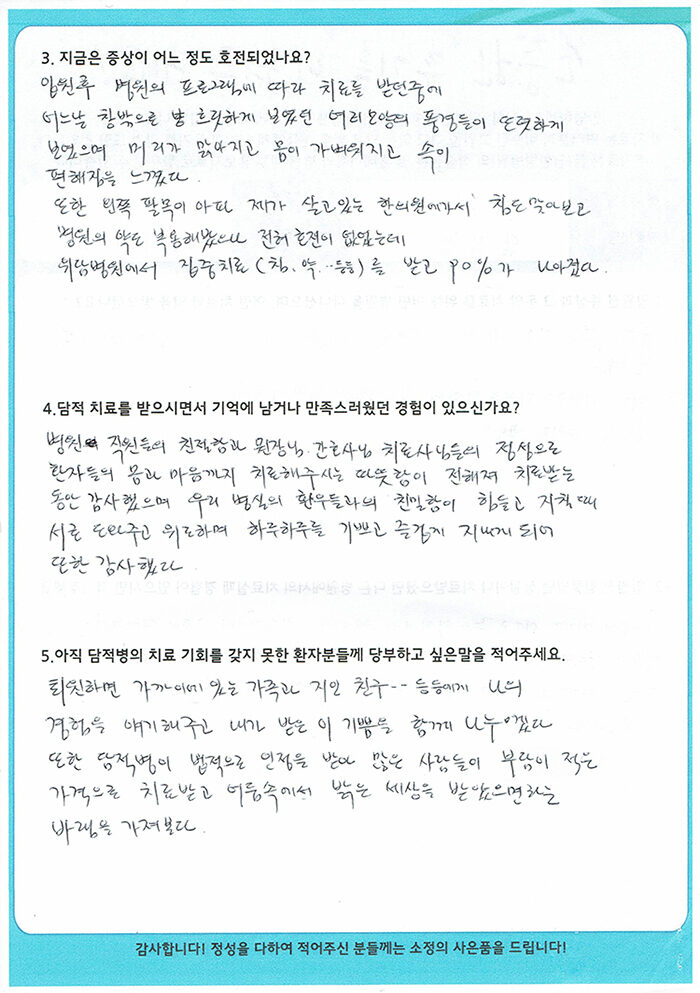 3. 지금은 증상이 어느 정도 호전되었나요?
입원후 병원의 프로그램에 따라 치료를 받던중에
어느날 창밖으로 늘 흐릿하게 보였던 여러모양의 풍경들이 또렷하게
보였으며 머리가 맑아지고 몸이 가벼워지고 속이
편해짐을 느꼈다.
또한 왼쪽 팔목이 아파 제가 살고있는 한의원에가서 침도맞아보고
병원의 약도 복용해봤으나 전혀 호전이 없었는데
위담병원에서 집중치료(침, 약...등등)를 받고 90%가 나아졌다.
4.담적 치료를 받으시면서 기억에 남거나 만족스러웠던 경험이 있으신가요?
병원 직원들의 친절함과 원장님, 간호사님 치료사님들의 정성으로
환자들의 몸과 마음까지 치료해주시는 따뜻함이 전해져 치료받는
동안 감사했으며 우리 병실의 환우들과의 친밀함이 힘들고 지칠때
서로 도와주고 위로하며 하루하루를 기쁘고 즐겁게 지내게 되어
또한 감사했다.
5.아직 담적병의 치료 기회를 갖지 못한 환자분들께 당부하고 싶은말을 적어주세요.
퇴원하면 가까이에 있는 가족과 지인 친구-- 등등에게 나의
경험을 얘기해주고 내가 받은 이 기쁨을 함께 나누어겠다
또한 담적병이 법적으로 인정을 받아 많은 사람들이 부담이 적은
가격으로 치료받고 어둠속에서 밝은 세상을 받았으면하는
바램을 가져본다.
감사합니다! 정성을 다하여 적어주신 분들께는 소정의 사은품을 드립니다!